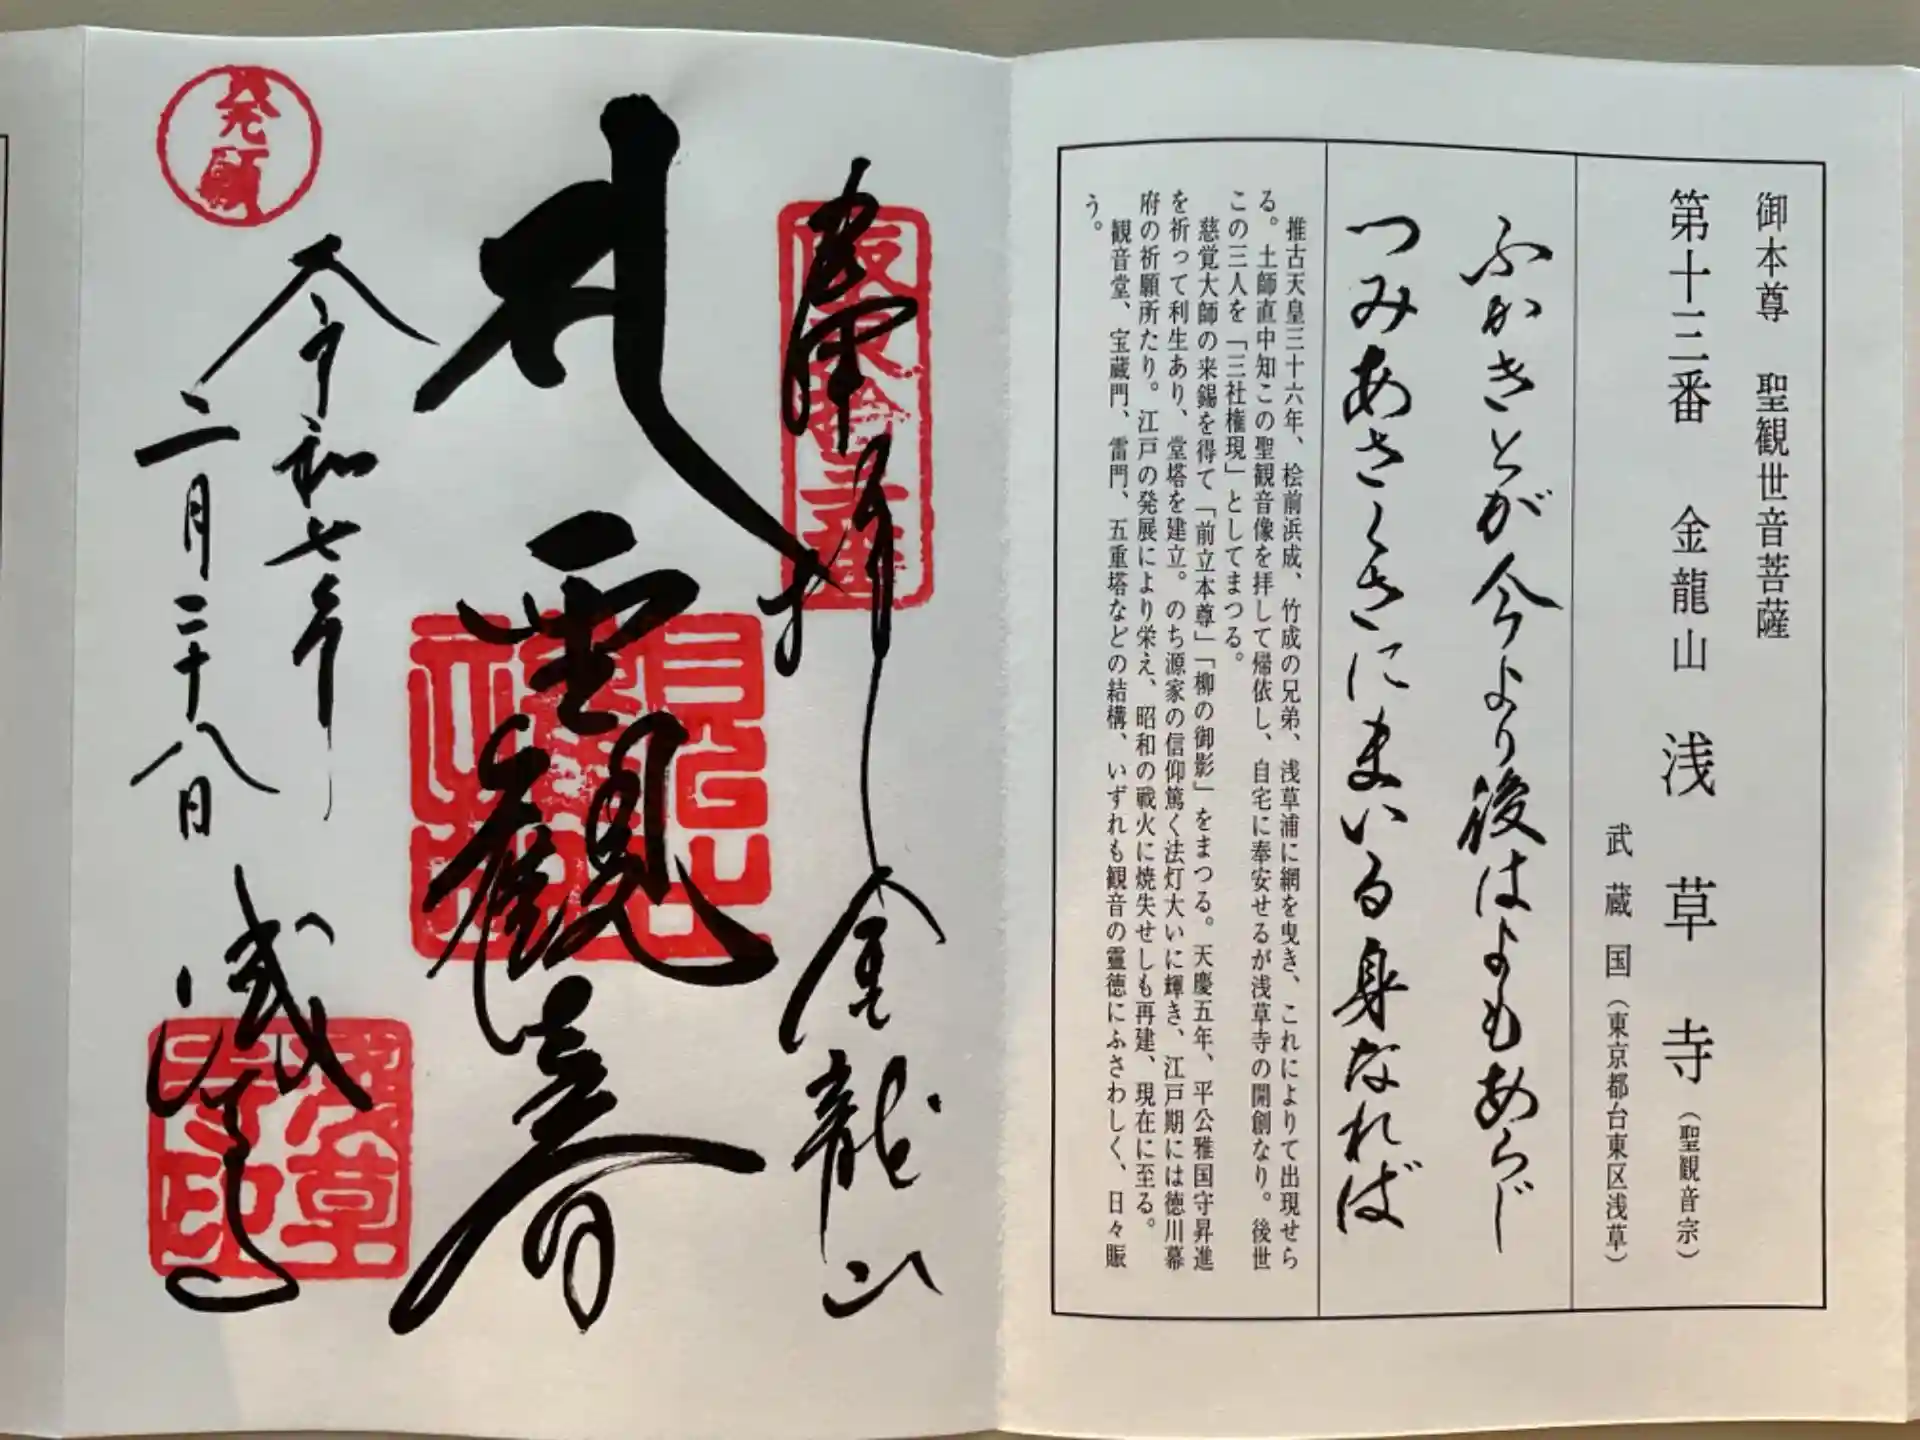 御本尊 聖観世音菩薩
第十三番 金龍山 浅草寺（聖観音宗）
武蔵国（東京都台東区浅草）
ふかきとが今より後はよもあらじ
つみあさくさにまいる身なれば
推古天皇三十六年、桧前浜成、竹成の兄弟、浅草浦に網を曳き、これによりて出現せら
る。土師直中知この聖観音像を拝して帰依し、自宅に奉安せるが浅草寺の開創なり。後世
この三人を「三社権現」としてまつる。
慈覚大師の来錫を得て「前立本尊」「柳の御影」をまつる。天慶五年、平公雅国守昇進
を祈って利生あり、堂塔を建立。のち源家の信仰篤く法灯大いに輝き、江戸期には徳川幕
府の祈願所たり。江戸の発展により栄え、昭和の戦火に焼失せしも再建、現在に至る。
観音堂、宝蔵門、雷門、五重塔などの結構、いずれも観音の霊徳にふさわしく、日々賑
う。
奉拝
金龍山
坂東拾三番
聖観音
令和七年
二月二十八日
浅草寺
発願
浅草寺印